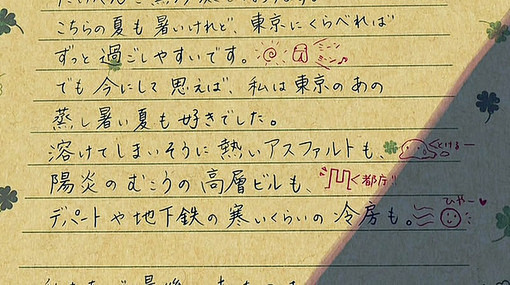 こちらの夏も暑いけれど、東京にくらべれば
ずっと過ごしやすいです。 ミーン ミン♪
でも今にして思えば、私は東京のあの
蒸し暑い夏も好きでした。
溶けてしまいそうに熱いアスファルトも、 とけるー
陽炎のむこうの高層ビルも、 都庁!!
ひゃー♥
デパートや地下鉄の寒いくらいの冷房も。